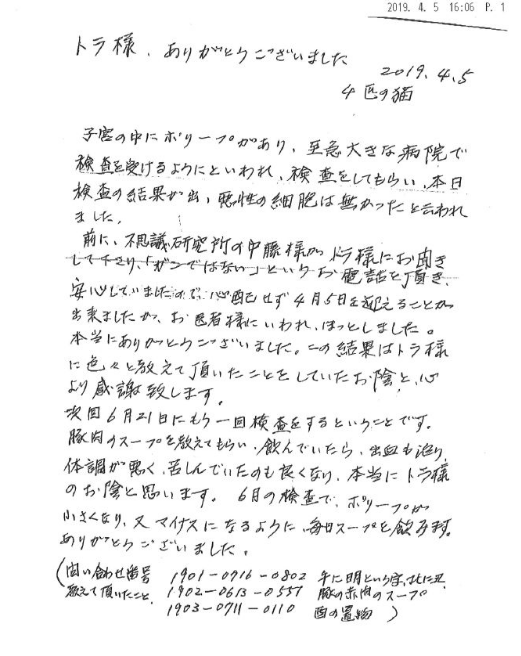 2019. 4. 5 16:06 P. 1
トラ様、ありがとうございました
2019.4.5
4匹の猫
子宮の中にポリープがあり、至急大きな病院で
検査を受けるようにといわれ、検査をしてもらい、本日
検査の結果が出、悪性の細胞は無かったと云われ
ました。
前に、不思議研究所の中藤様からトラ様にお聞き
して下さり、「ガンではない」というお電話を頂き、
安心していましたので、心配せず4月5日を迎えることが
出来ましたが、お医者様にいわれ、ほっとしました。
本当にありがとうございました。この結果はトラ様
に色々と教えて頂いたことをしていたお陰と、心
より感謝致します。
次回6月21日にもう一回検査をするということです。
豚肉のスープを教えてもらい、飲んでいたら、出血も治り、
体調が悪く、苦しんでいたのも良くなり、本当にトラ様
のお陰と思います。6月の検査で、ポリープが
小さくなり、又マイナスになるように、毎日スープを飲みます。
ありがとうございました。
(問い合わせ番号 1901-0916-0802 手に明という字、
教えて頂いたこと、 1902-0613-0557 豚の赤肉のスープ
1903-0711-0110 酉の置物 )